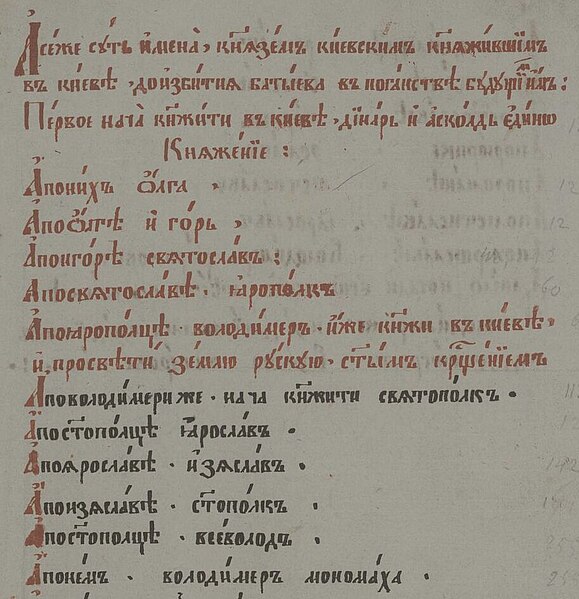 А се́же сꙋ́ть и҆мена̀, кн҃ѧзе́мъ кие́вскимъ кн҃ѧжи́вшїимъ
въ кі́евѣ, доизбитиꙗ батыева въ пога́нствѣ бꙋ́дꙋщїимъ:
Пе́рвое нача̀ кн҃жи́ти въ кі́евѣ, ди́наръ и҆ а҆ско́лдъ є҆ди́но
Кнѧже́нїе:
А пони́хъ ѻ҆́лга,
А поѻ҆́лгѣ и҆ го́рь,
А поигорѣ свѧтосла́въ:
А посвѧтосла́вѣ. ꙗ҆ропо́лкъ
А поꙗропо́лцѣ. володи́меръ. и҆́же кн҃жи въ кі́евѣ,
и҆ просвѣтѝ зе́млю рꙋ́скꙋю. ст҃ы́мъ крщ҃е́нїемъ
А поволоди́мери же. нача̀ кн҃жи́ти свѧтопо́лкъ.
А пост҃опо́лцѣ ꙗ҆росла́въ.
А поꙗросла́вѣ. и҆зѧсла́въ.
А поизѧсла́вѣ. ст҃опо́лкъ.
А пост҃опо́лцѣ. все́володъ.
А поне́мъ. володи́меръ монома́ха.